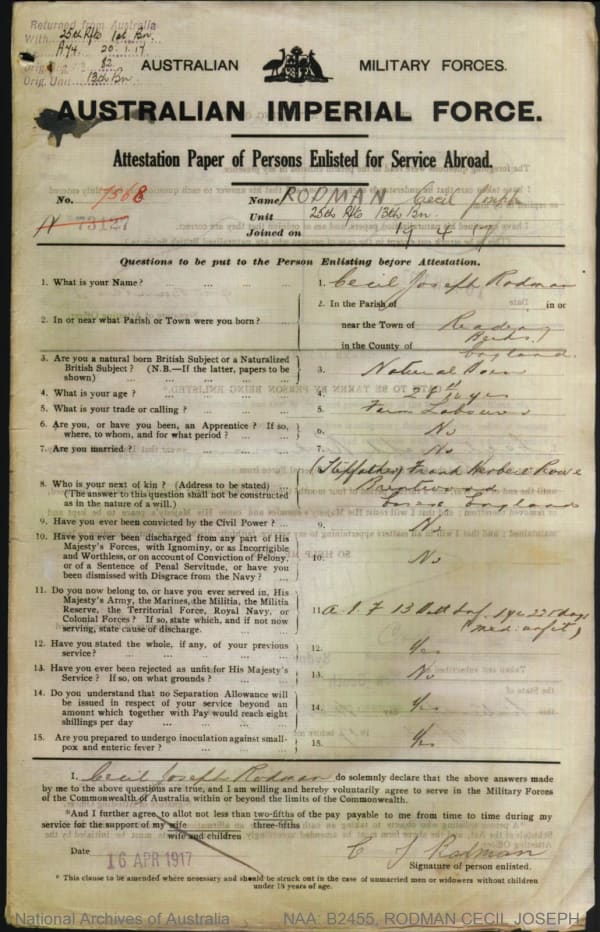 Returned from Australia
With 25th Rfts 1st Bn.
A74. 20.1.17
82
Orig. Unit 13th Bn
AUSTRALIAN MILITARY FORCES.
AUSTRALIAN IMPERIAL FORCE.
Attestation Paper of Persons Enlisted for Service Abroad.
No. 7568 Name RODMAN Cecil Joseph
N 73127 Unit 25th Rfts 13th Bn.
Joined on 19 4 17
Questions to be put to the Person Enlisting before Attestation.
1. What is your Name? ... 1. Cecil Joseph Rodman
2. In or near what Parish or Town were you born? ... 2. In the Parish of in or
near the Town of Reading
in the County of Berks,
England.
3. Are you a natural born British Subject or a Naturalized
British Subject? (N.B.—If the latter, papers to be
shown) ... 3. Natural Born
4. What is your age? ... 4. 28
5. What is your trade or calling? ... 5. Farm Labourer
6. Are you, or have you been, an Apprentice? If so,
where, to whom, and for what period? ... 6. No
7. Are you married? ... 7. No
8. Who is your next of kin? (Address to be stated) ...
(The answer to this question shall not be constructed
as in the nature of a will.) 8. (Stepfather) Frank Herbert
Brentwood
Essex England
9. Have you ever been convicted by the Civil Power? ... 9. No
10. Have you ever been discharged from any part of His
Majesty's Forces, with Ignominy, or as Incorrigible
and Worthless, or on account of Conviction of Felony,
or of a Sentence of Penal Servitude, or have you
been dismissed with Disgrace from the Navy? ... 10. No
11. Do you now belong to, or have you ever served in, His
Majesty's Army, the Marines, the Militia, the Militia
Reserve, the Territorial Force, Royal Navy, or
Colonial Forces? If so, state which, and if not now
serving, state cause of discharge. 11. A.I.F 13 Batt Inf. 1yr 225 days
(med. unfit)
12. Have you stated the whole, if any, of your previous
service? ... 12. Yes
13. Have you ever been rejected as unfit for His Majesty's
Service? If so, on what grounds? ... 13. No
14. Do you understand that no Separation Allowance will
be issued in respect of your service beyond an
amount which together with Pay would reach eight
shillings per day ... 14. Yes
15. Are you prepared to undergo inoculation against small-
pox and enteric fever? ... 15. Yes
I, Cecil Joseph Rodman do solemnly declare that the above answers made
by me to the above questions are true, and I am willing and hereby voluntarily agree to serve in the Military Forces
of the Commonwealth of Australia within or beyond the limits of the Commonwealth.
*And I further agree to allot not less than two-fifths of the pay payable to me from time to time during my
three-fifths
service for the support of my wife
wife and children
Date 16 APR 1917 C J Rodman
Signature of person enlisted.
* This clause to be amended where necessary and should be struck out in the case of unmarried men or widowers without children
under 18 years of age.
National Archives of Australia NAA: B2455, RODMAN CECIL JOSEPH